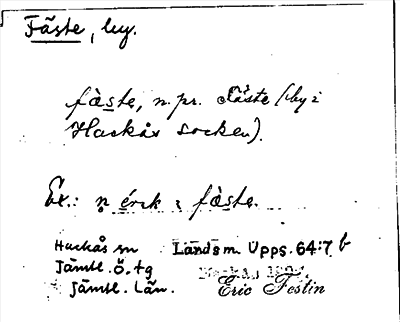 Fäste, by.
fàste, n.pr. Fäste (by i
Hackås socken).
Ex.: n̥ érık i fàste.
Hackås sn Landsm. Upps. 64:7 b
Jämtl. ö. tg
Jämtl. Län. Eric Festin